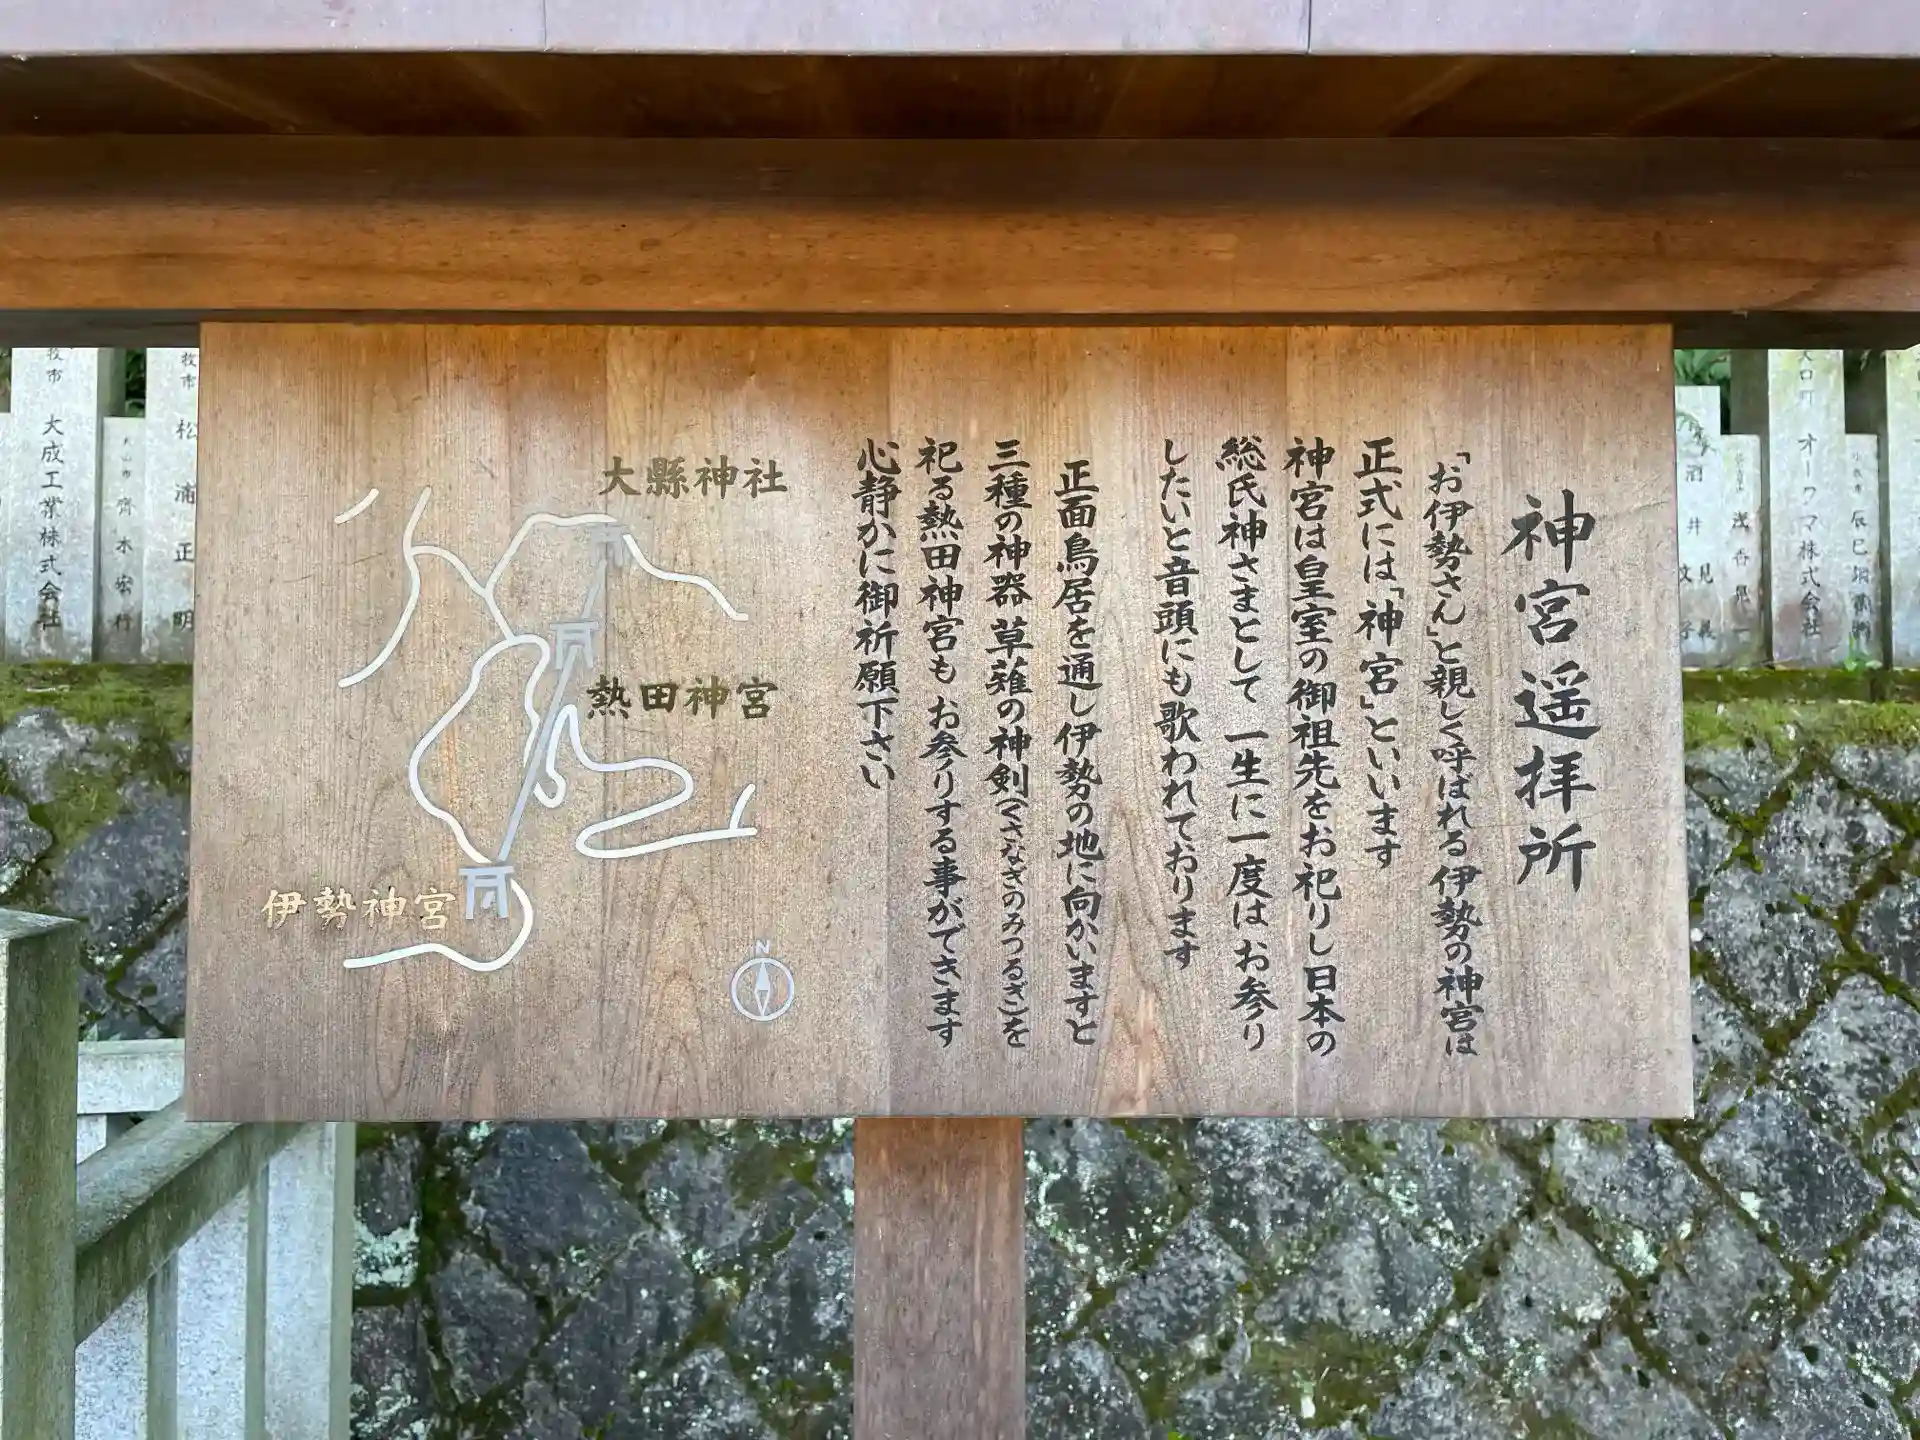 神宮遥拝所
「お伊勢さん」と親しく呼ばれる伊勢の神宮は
正式には「神宮」といいます
神宮は皇室の御祖先をお祀りし日本の
総氏神さまとして 一生に一度はお参り
したいと音頭にも歌われております
正面鳥居を通し伊勢の地に向かいますと
三種の神器 草薙の神剣(くさなぎのみつるぎ)を
祀る熱田神宮も お参りする事ができます
心静かに御祈願下さい
大縣神社
熱田神宮
伊勢神宮
N
オークマ株式会社
牧市 松浦正明
齊木宏行
牧市 大成工業株式会社